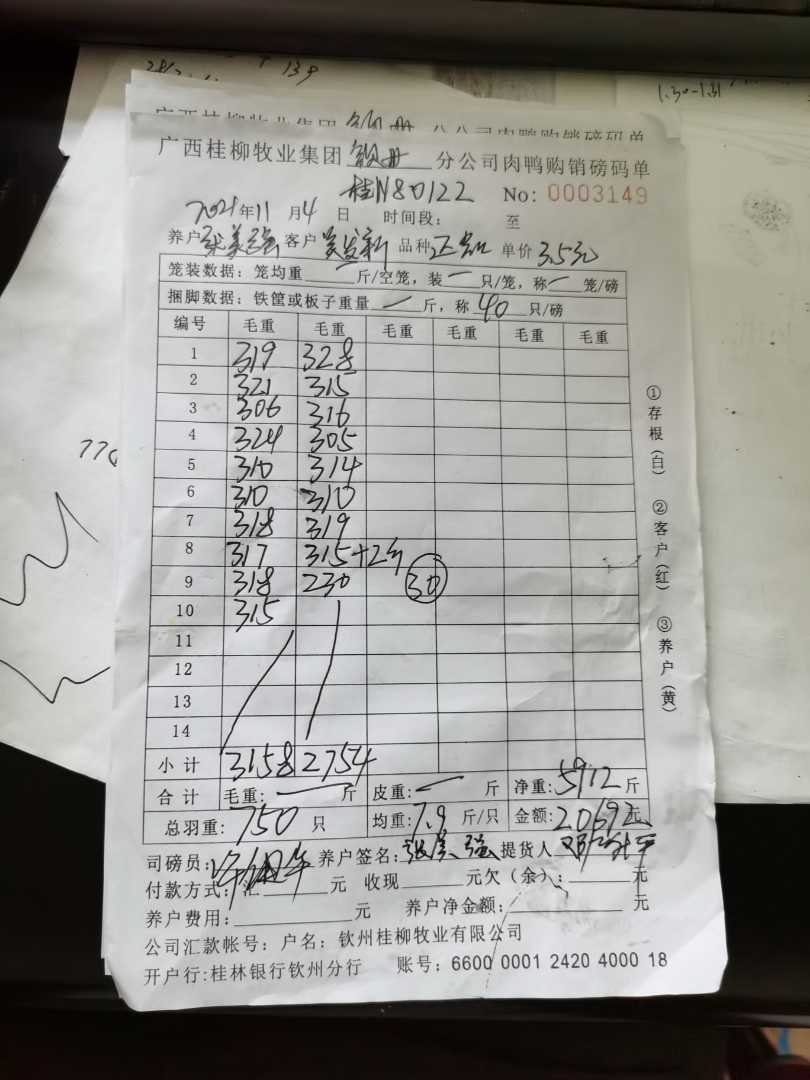 139
1.30-1.31
广西桂柳牧业集团 钦州 分公司肉鸭购销磅码单
广西桂柳牧业集团 钦州 分公司肉鸭购销磅码单
桂N80122 No: 0003149
2021年11月4日 时间段: 至
养户张美强 客户 吴发新 品种正品 单价3.5元
笼装数据: 笼均重 一 斤/空笼, 装一只/笼, 称一笼/磅
捆脚数据: 铁筐或板子重量 一 斤, 称 40 只/磅
编号 毛重 毛重 毛重 毛重 毛重 毛重
1 319 328
2 321 315
3 306 316
4 324 305
5 310 314
6 310 310
7 318 319
8 317 315+2
9 318 230 30
10 315
11
12
13
14
小计 3158 2754
合计 毛重: 一 斤 皮重: 一 斤 净重: 5912 斤
总羽重: 750 只 均重: 7.9 斤/只 金额: 20692元
司磅员: 养户签名: 张美强 提货人
付款方式: 汇 元 收现 元欠(余): 元
养户费用: 元 养户净金额: 元
公司汇款帐号: 户名: 钦州桂柳牧业有限公司
开户行:桂林银行钦州分行 账号: 6600 0001 2420 4000 18
①存根(白) ②客户(红) ③养户(黄)
770